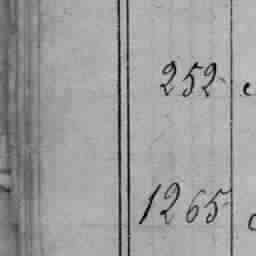 252
1265